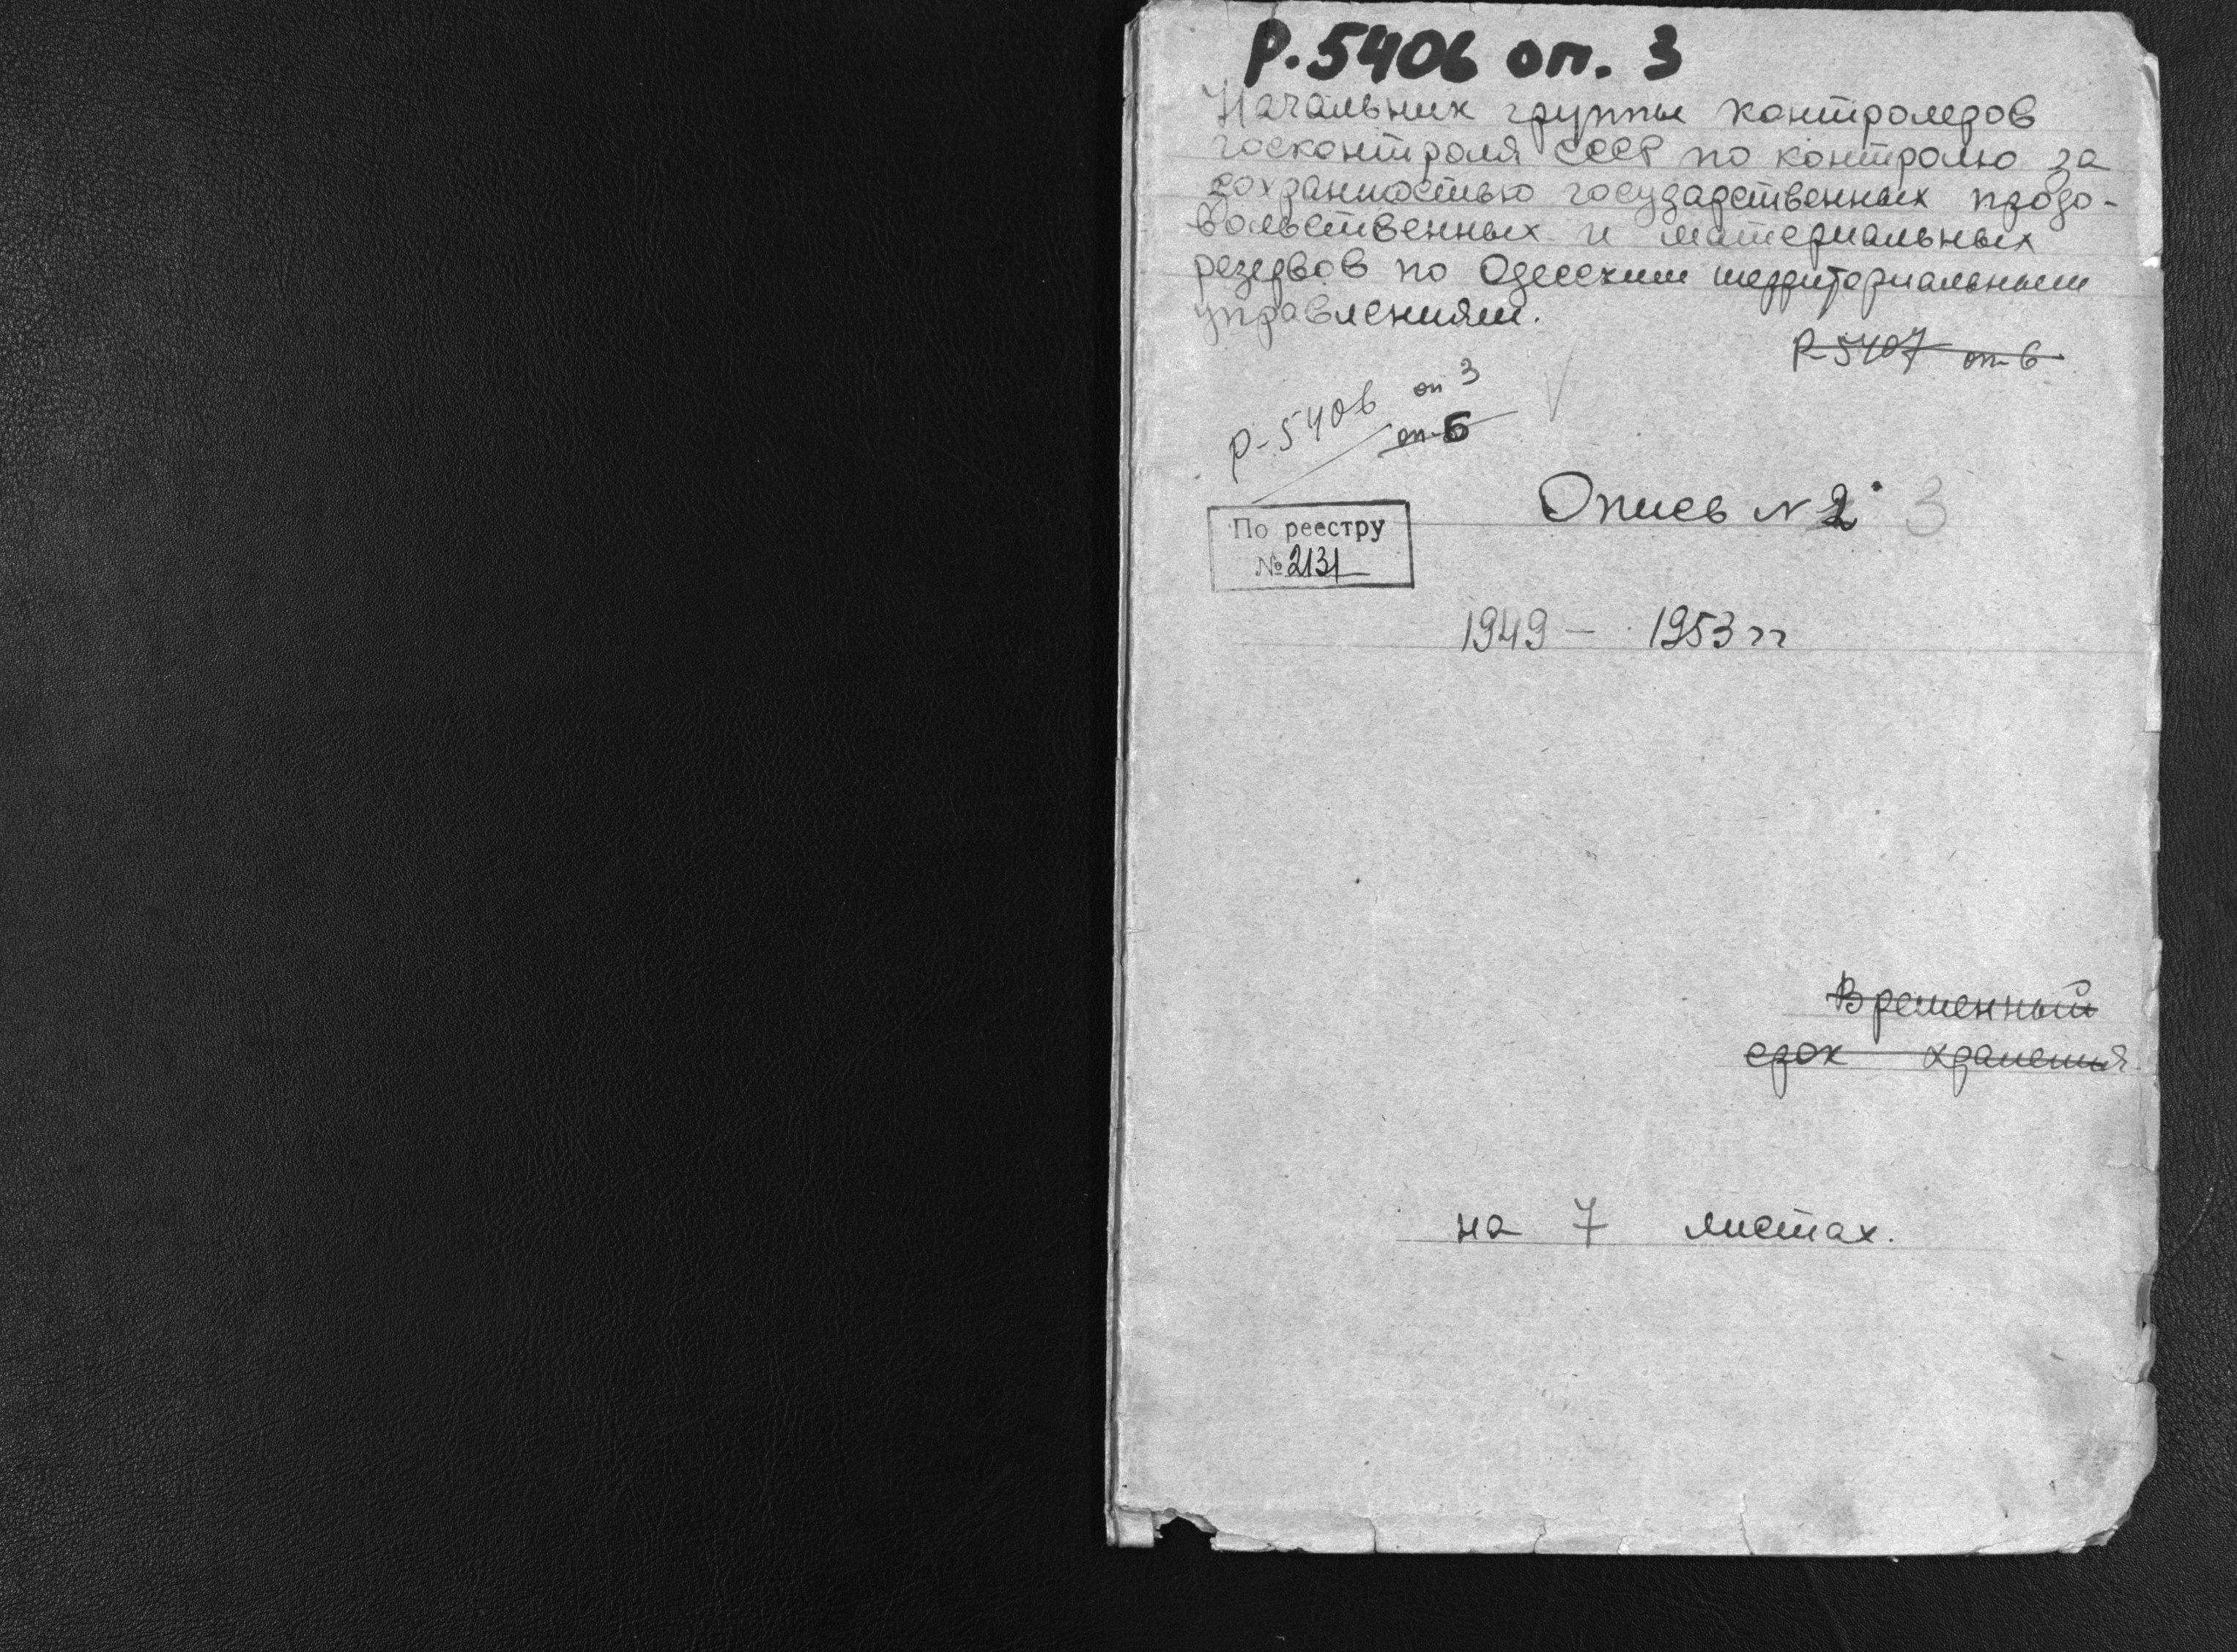 Р.5406 оп. 3
Начальник группы контролеров
госконтроля СССР по контролю за
сохранностью государственных продо-
вольственных и материальных
резервов по Одесским территориальным
управлениям.
Р-5407 оп-6
Р-5406 оп 3
оп-5
Опись № 2 3
По реестру
№ 2131
1949 - 1953 гг
Временный
срок хранения
на 7 листах.